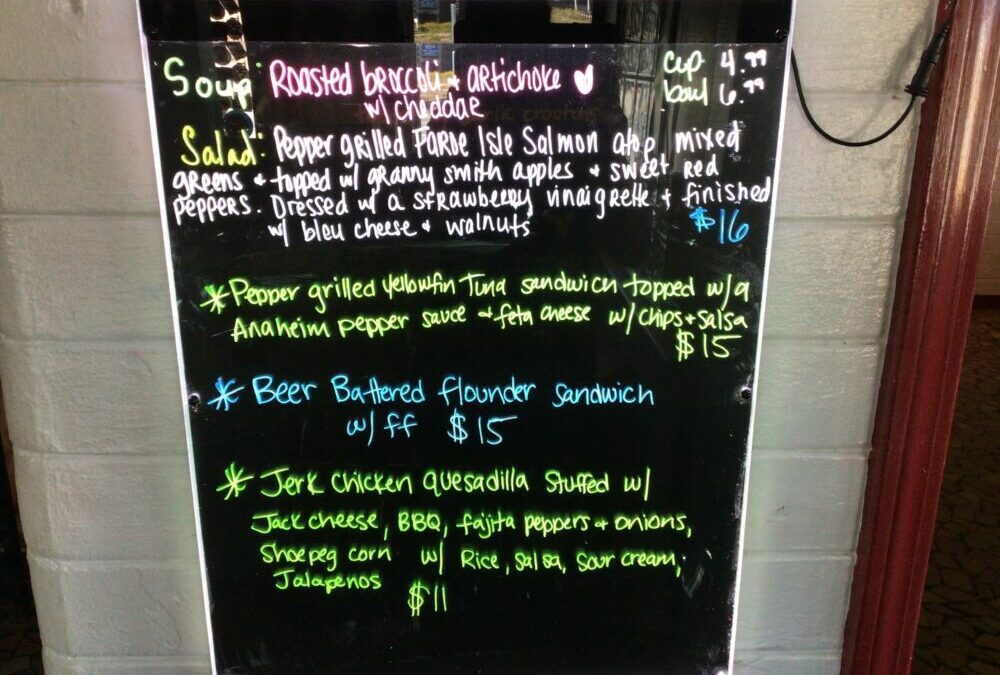 Soup: Roasted broccoli + artichoke cup 4.99
w/ cheddar bowl 6.99
Salad: Pepper grilled Faroe Isle Salmon atop mixed
greens + topped w/ granny smith apples + sweet red
peppers. Dressed w/ a strawberry vinaigrette + finished
w/ bleu cheese + walnuts $16
* Pepper grilled yellowfin Tuna sandwich topped w/ a
Anaheim pepper sauce + feta cheese w/ chips + salsa
$15
* Beer Battered flounder sandwich
w/ ff $15
* Jerk chicken quesadilla stuffed w/
Jack cheese, BBQ, fajita peppers + onions,
Shoepeg corn w/ Rice, salsa, sour cream,
Jalapenos
$11